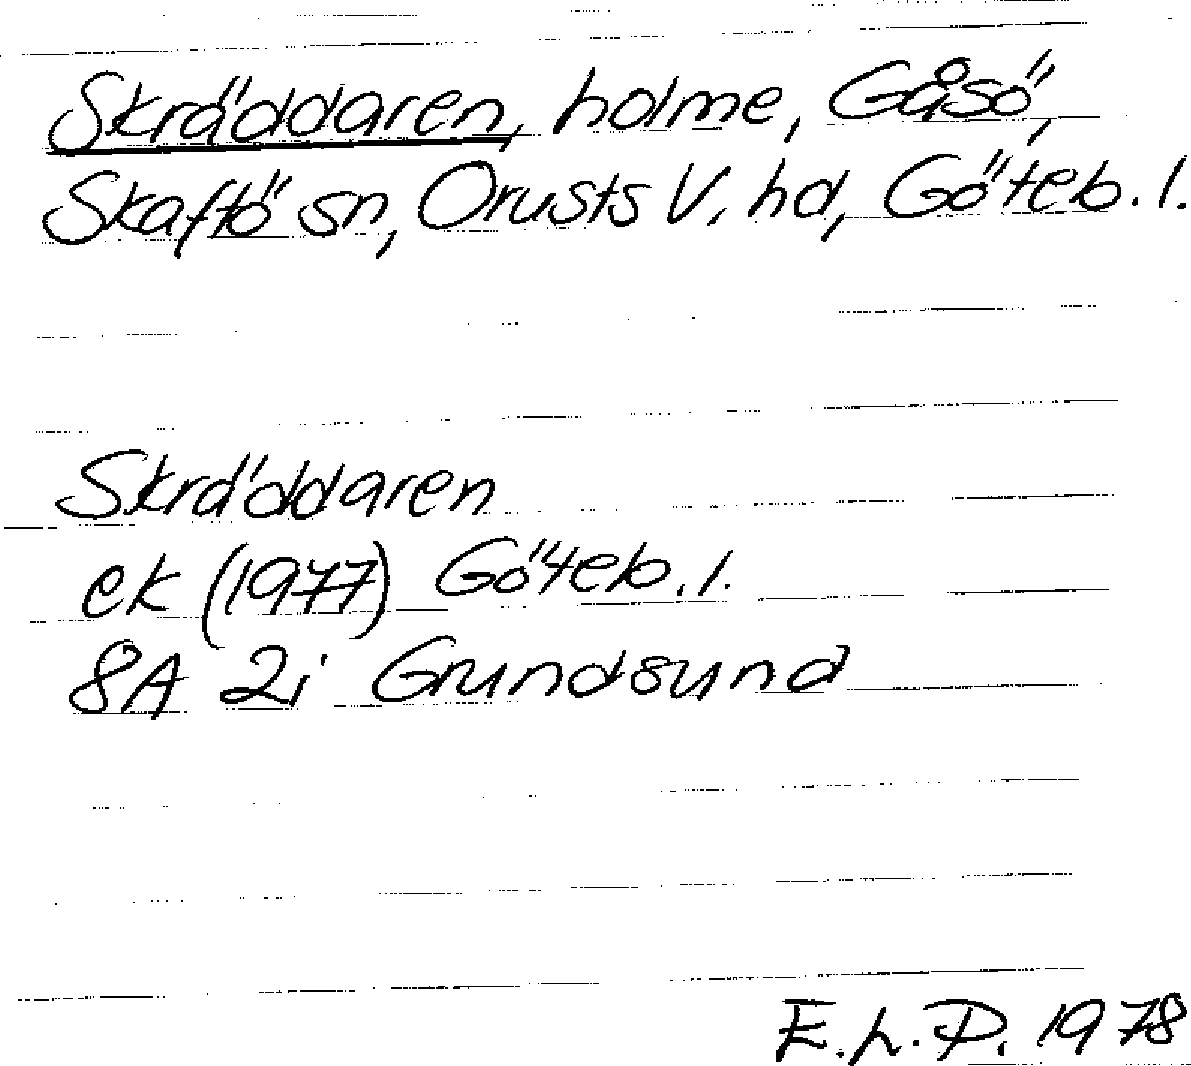 Skräddaren, holme, Gåsö,
Skaftö sn, Orusts V. hd, Göteb. l.
Skräddaren
ek (1977) Göteb. l.
8A 2i Grundsund
E.L.P. 1978